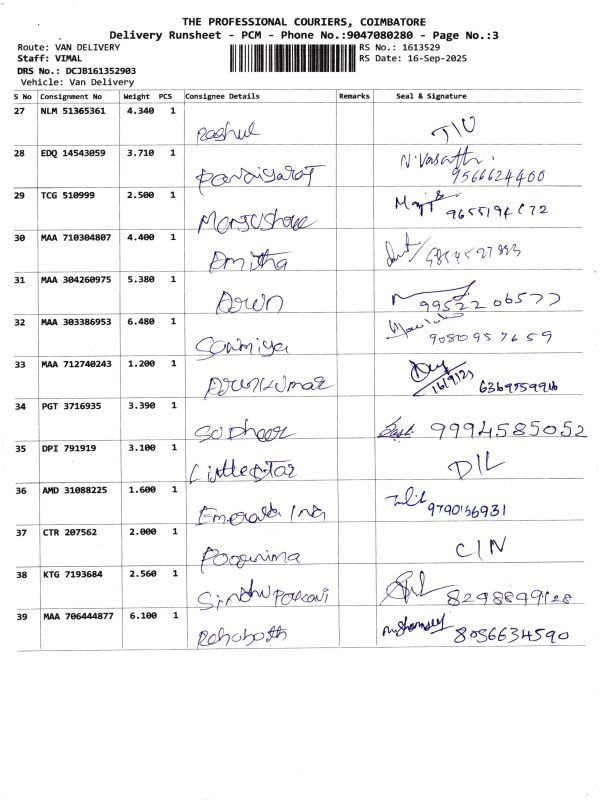 THE PROFESSIONAL COURIERS, COIMBATORE
Delivery Runsheet - PCM - Phone No.:9047080280 - Page No.:3
Route: VAN DELIVERY
RS No.: 1613529
Staff: VIMAL
RS Date: 16-Sep-2025
DRS No.: DCJB161352903
Vehicle: Van Delivery
S No Consignment No Weight PCS Consignee Details Remarks Seal & Signature
27 NLM 51365361 4.340 1
28 EDQ 14543059 3.710 1 N.Vasanth.
9566624400
29 TCG 510999 2.500 1
30 MAA 710304807 4.400 1
Amitha
31 MAA 304260975 5.380 1
Arun 9952206577
32 MAA 303386953 6.480 1
Sowmiya 9080957659
33 MAA 712740243 1.200 1
Arunkumar 6369759916
34 PGT 3716935 3.390 1
Sudheer 9994585052
35 DPI 791919 3.100 1
Little Star DIL
36 AMD 31088225 1.600 1
Emerald Ind 9790156931
37 CTR 207562 2.000 1
Poornima CIN
38 KTG 7193684 2.560 1
39 MAA 706444877 6.100 1
Rehoboth 8056634590